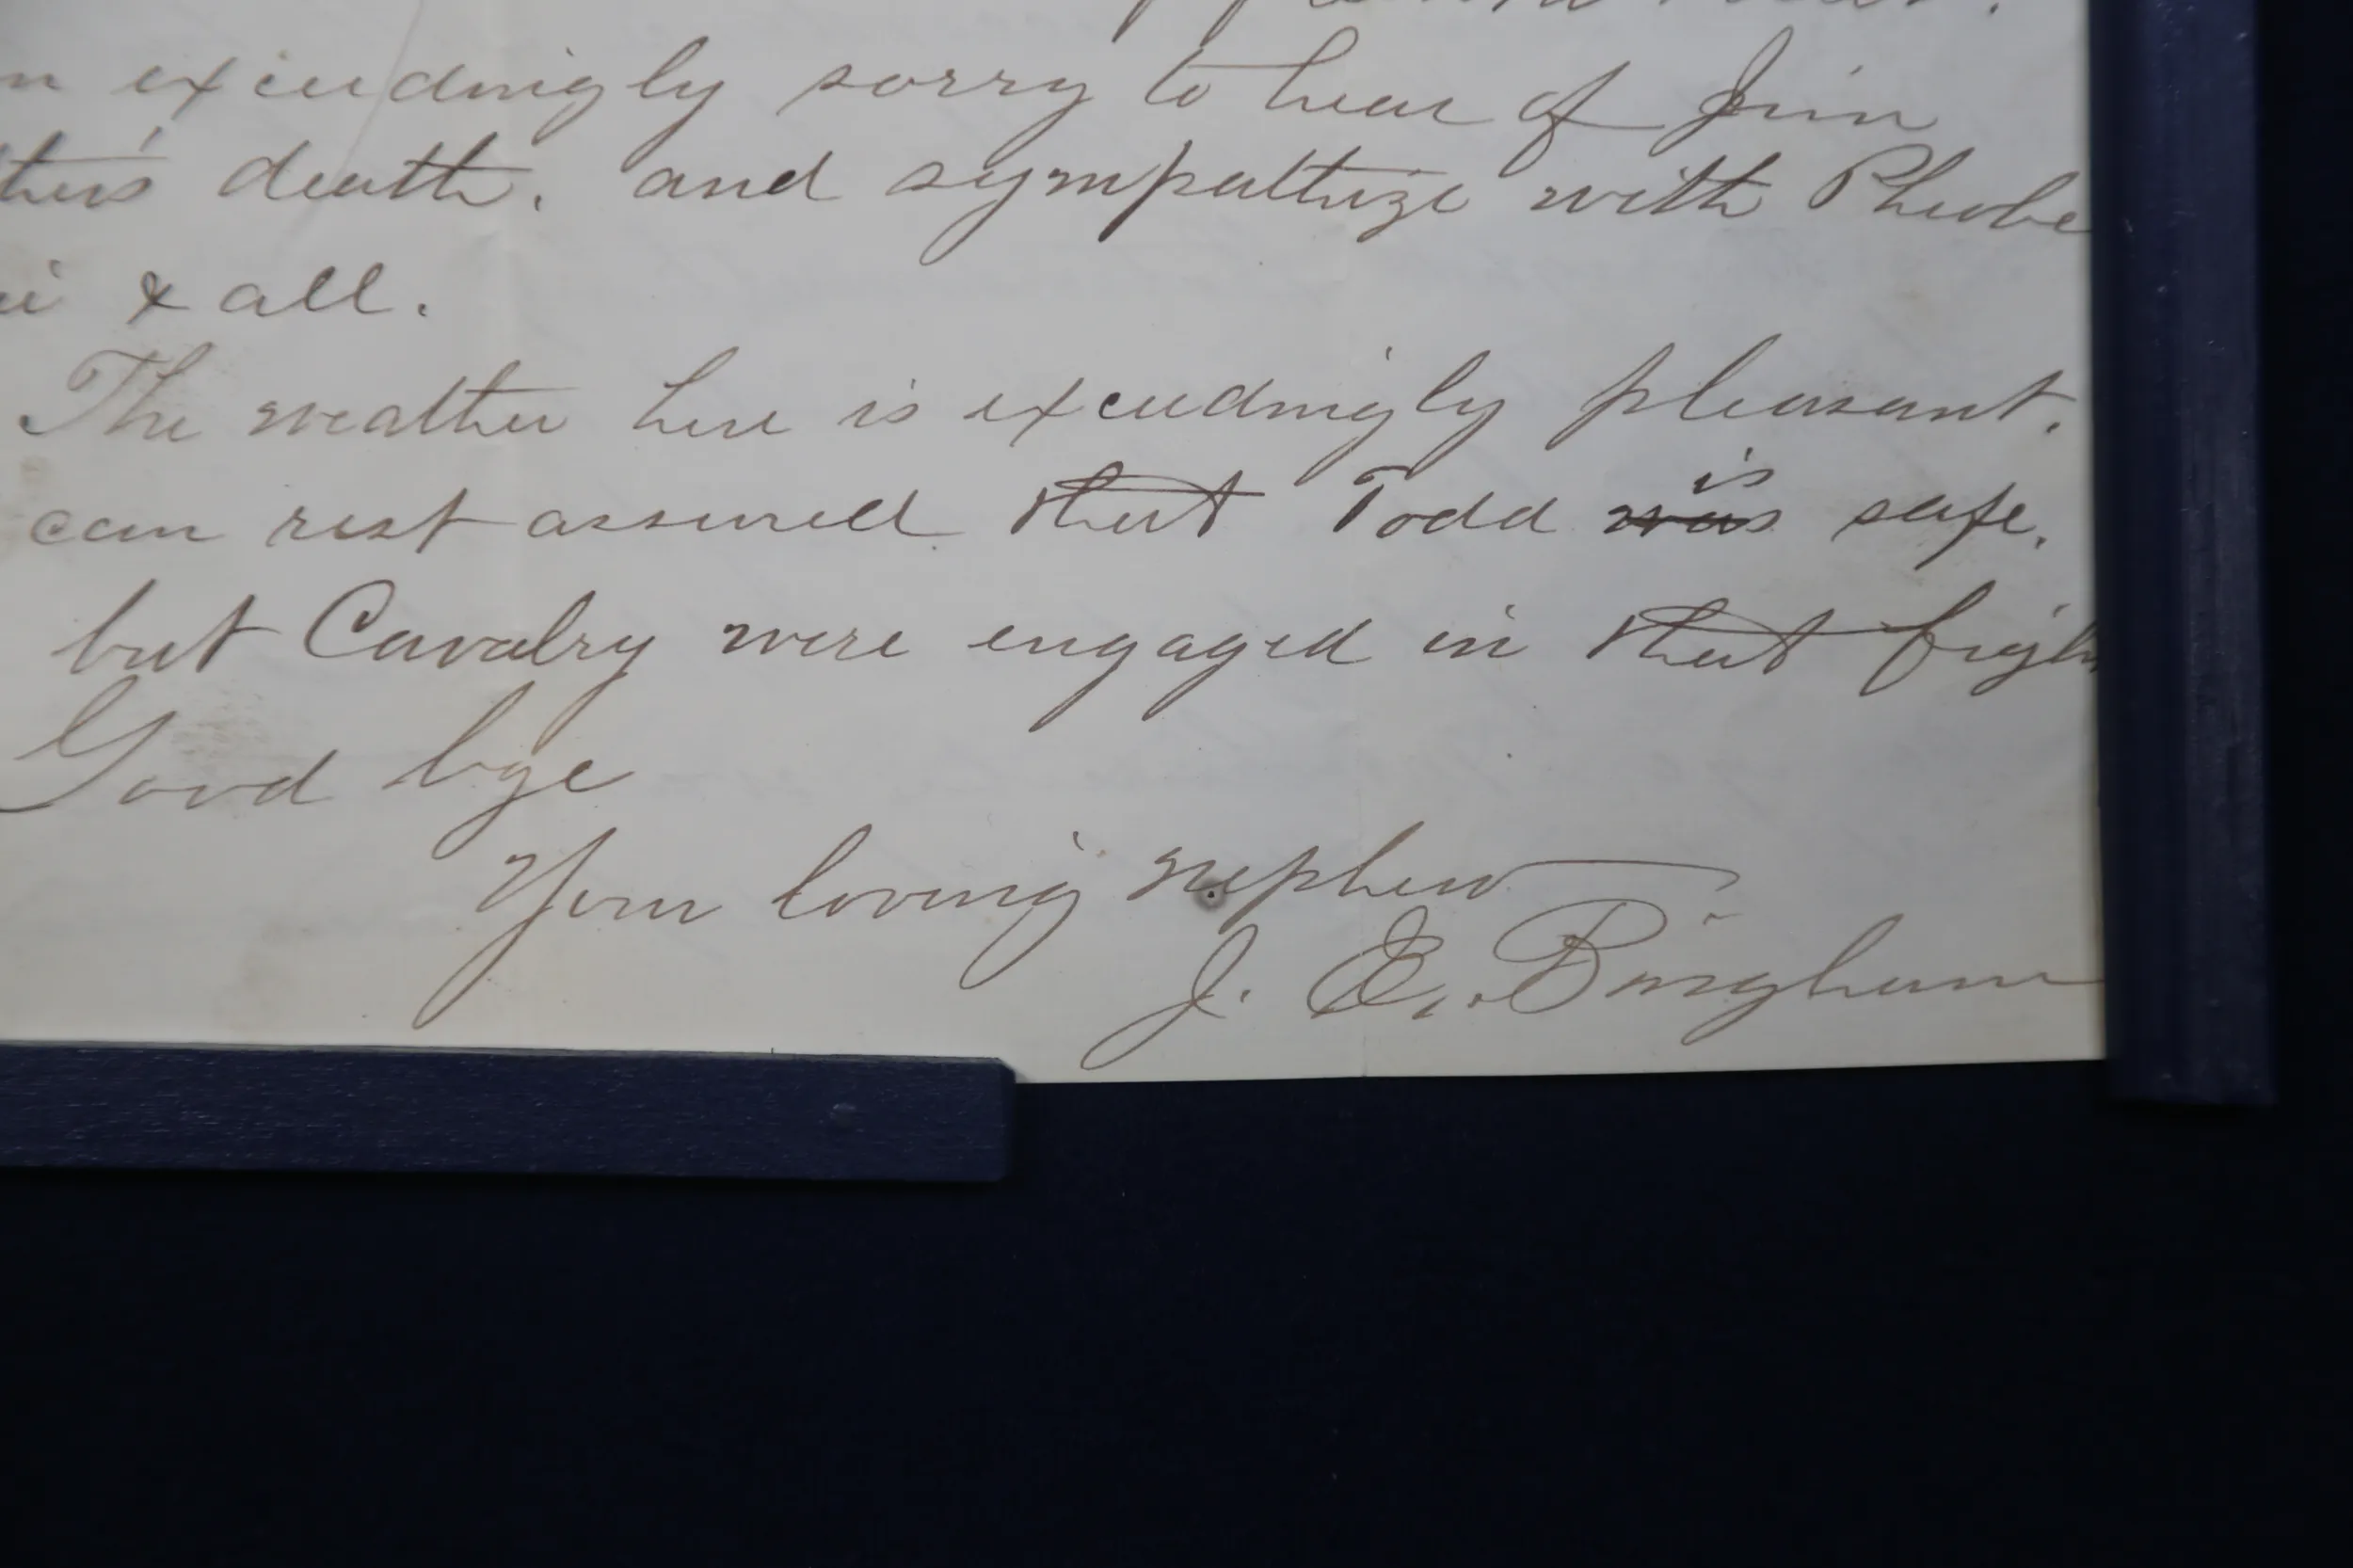 exceedingly sorry to hear of Jim
death. and sympathize with Pheobe
& all.
The weather here is exceedingly pleasant.
can rest assured that Todd was is safe.
but Cavalry were engaged in that figh
Good bye
Your loving nephew
J. E. Bingham